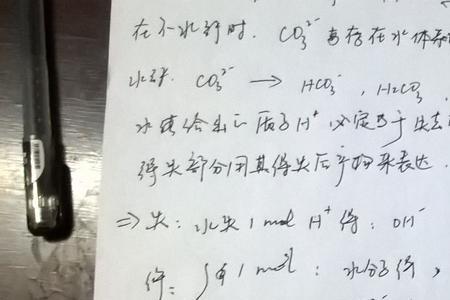 在不水解时. CO₃²⁻ 存在水体系
水解. CO₃²⁻ → HCO₃⁻, H₂CO₃
水能给出的质子 H⁺ 必定等于失去
得失部分用其得失后产物来表达.
⇒ 失: 水失 1 mol H⁺ 得: OH⁻
得: 1 mol: 水分子得,